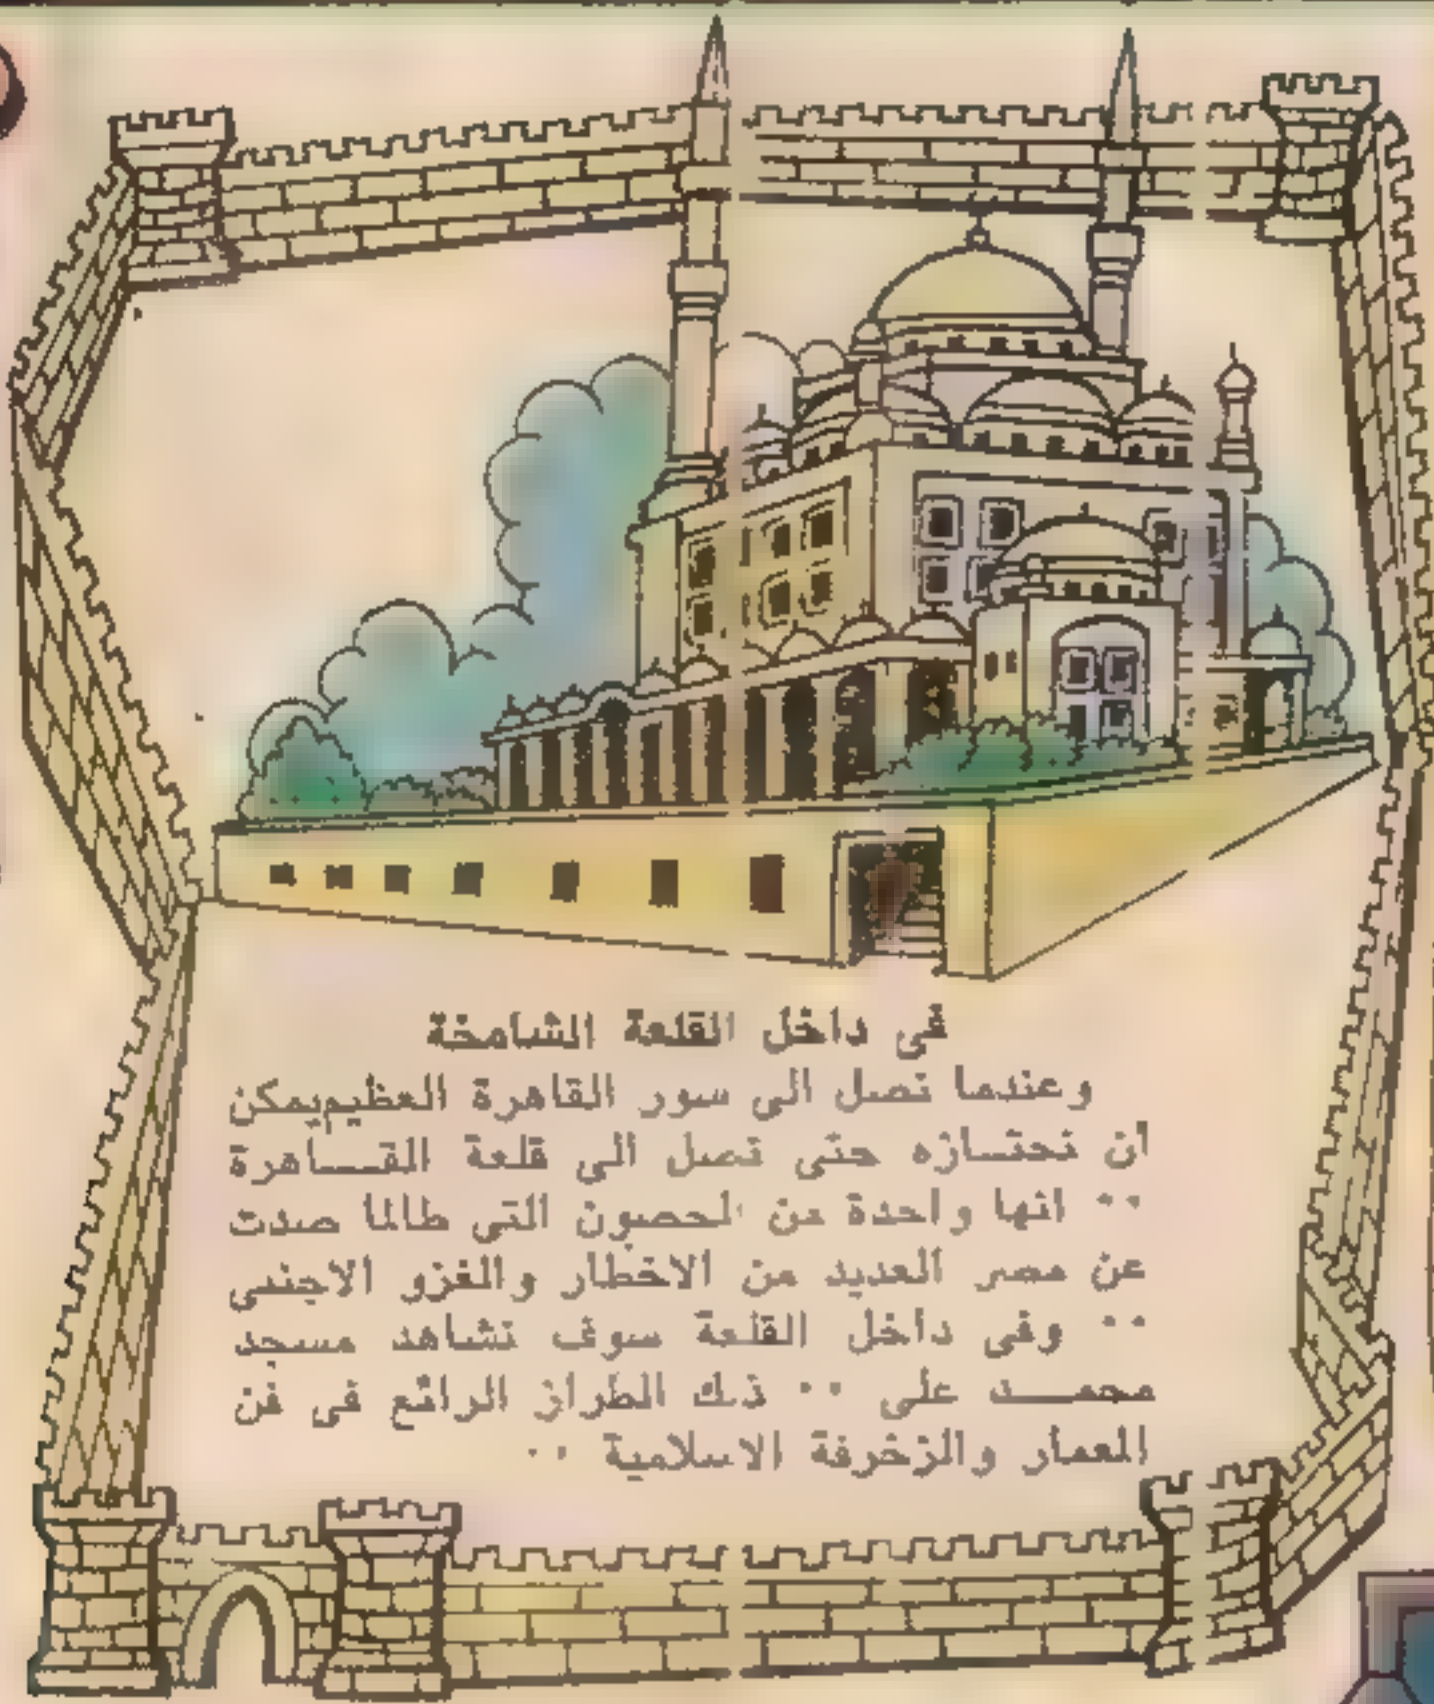 فى داخل القلعة الشامخة
وعندما تصل الى سور القاهرة العظيم يمكن
ان تجتازه حتى تصل الى قلعة القساهرة
•• انها واحدة من الحصون التى طالما صدت
عن مصر العديد من الاخطار والغزو الاجنبى
•• وفى داخل القلعة سوف تشاهد مسجد
محمد على •• ذلك الطراز الرائع فى فن
المعمار والزخرفة الاسلامية ••